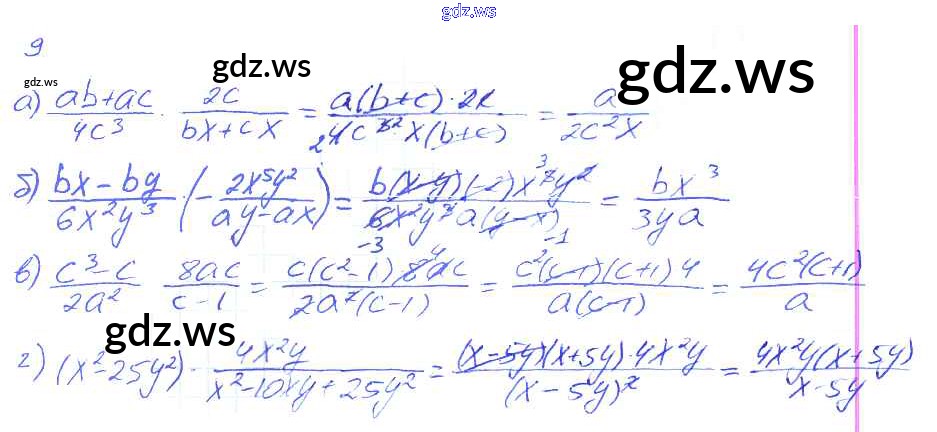 gdz.ws
9
gdz.ws gdz.ws gdz.ws
а) (ab+ac)/(4c³) · 2c/(bx+cx) = (a(b+c)·2c)/(4c³x(b+c)) = a/(2c²x)
б) (bx-by)/(6x²y³) · (-2x⁵y²/(ay-ax)) = (b(x-y)(-2)x⁵y²)/(6x²y³a(y-x)) = bx³/(3ya)
в) (c³-c)/(2a²) · 8ac/(c-1) = (c(c²-1)·8ac)/(2a²(c-1)) = (c²(c-1)(c+1)4)/(a(c-1)) = 4c²(c+1)/a
gdz.ws gdz.ws
г) (x²-25y²) · 4x²y/(x²-10xy+25y²) = ((x-5y)(x+5y)·4x²y)/(x-5y)² = 4x²y(x+5y)/(x-5y)